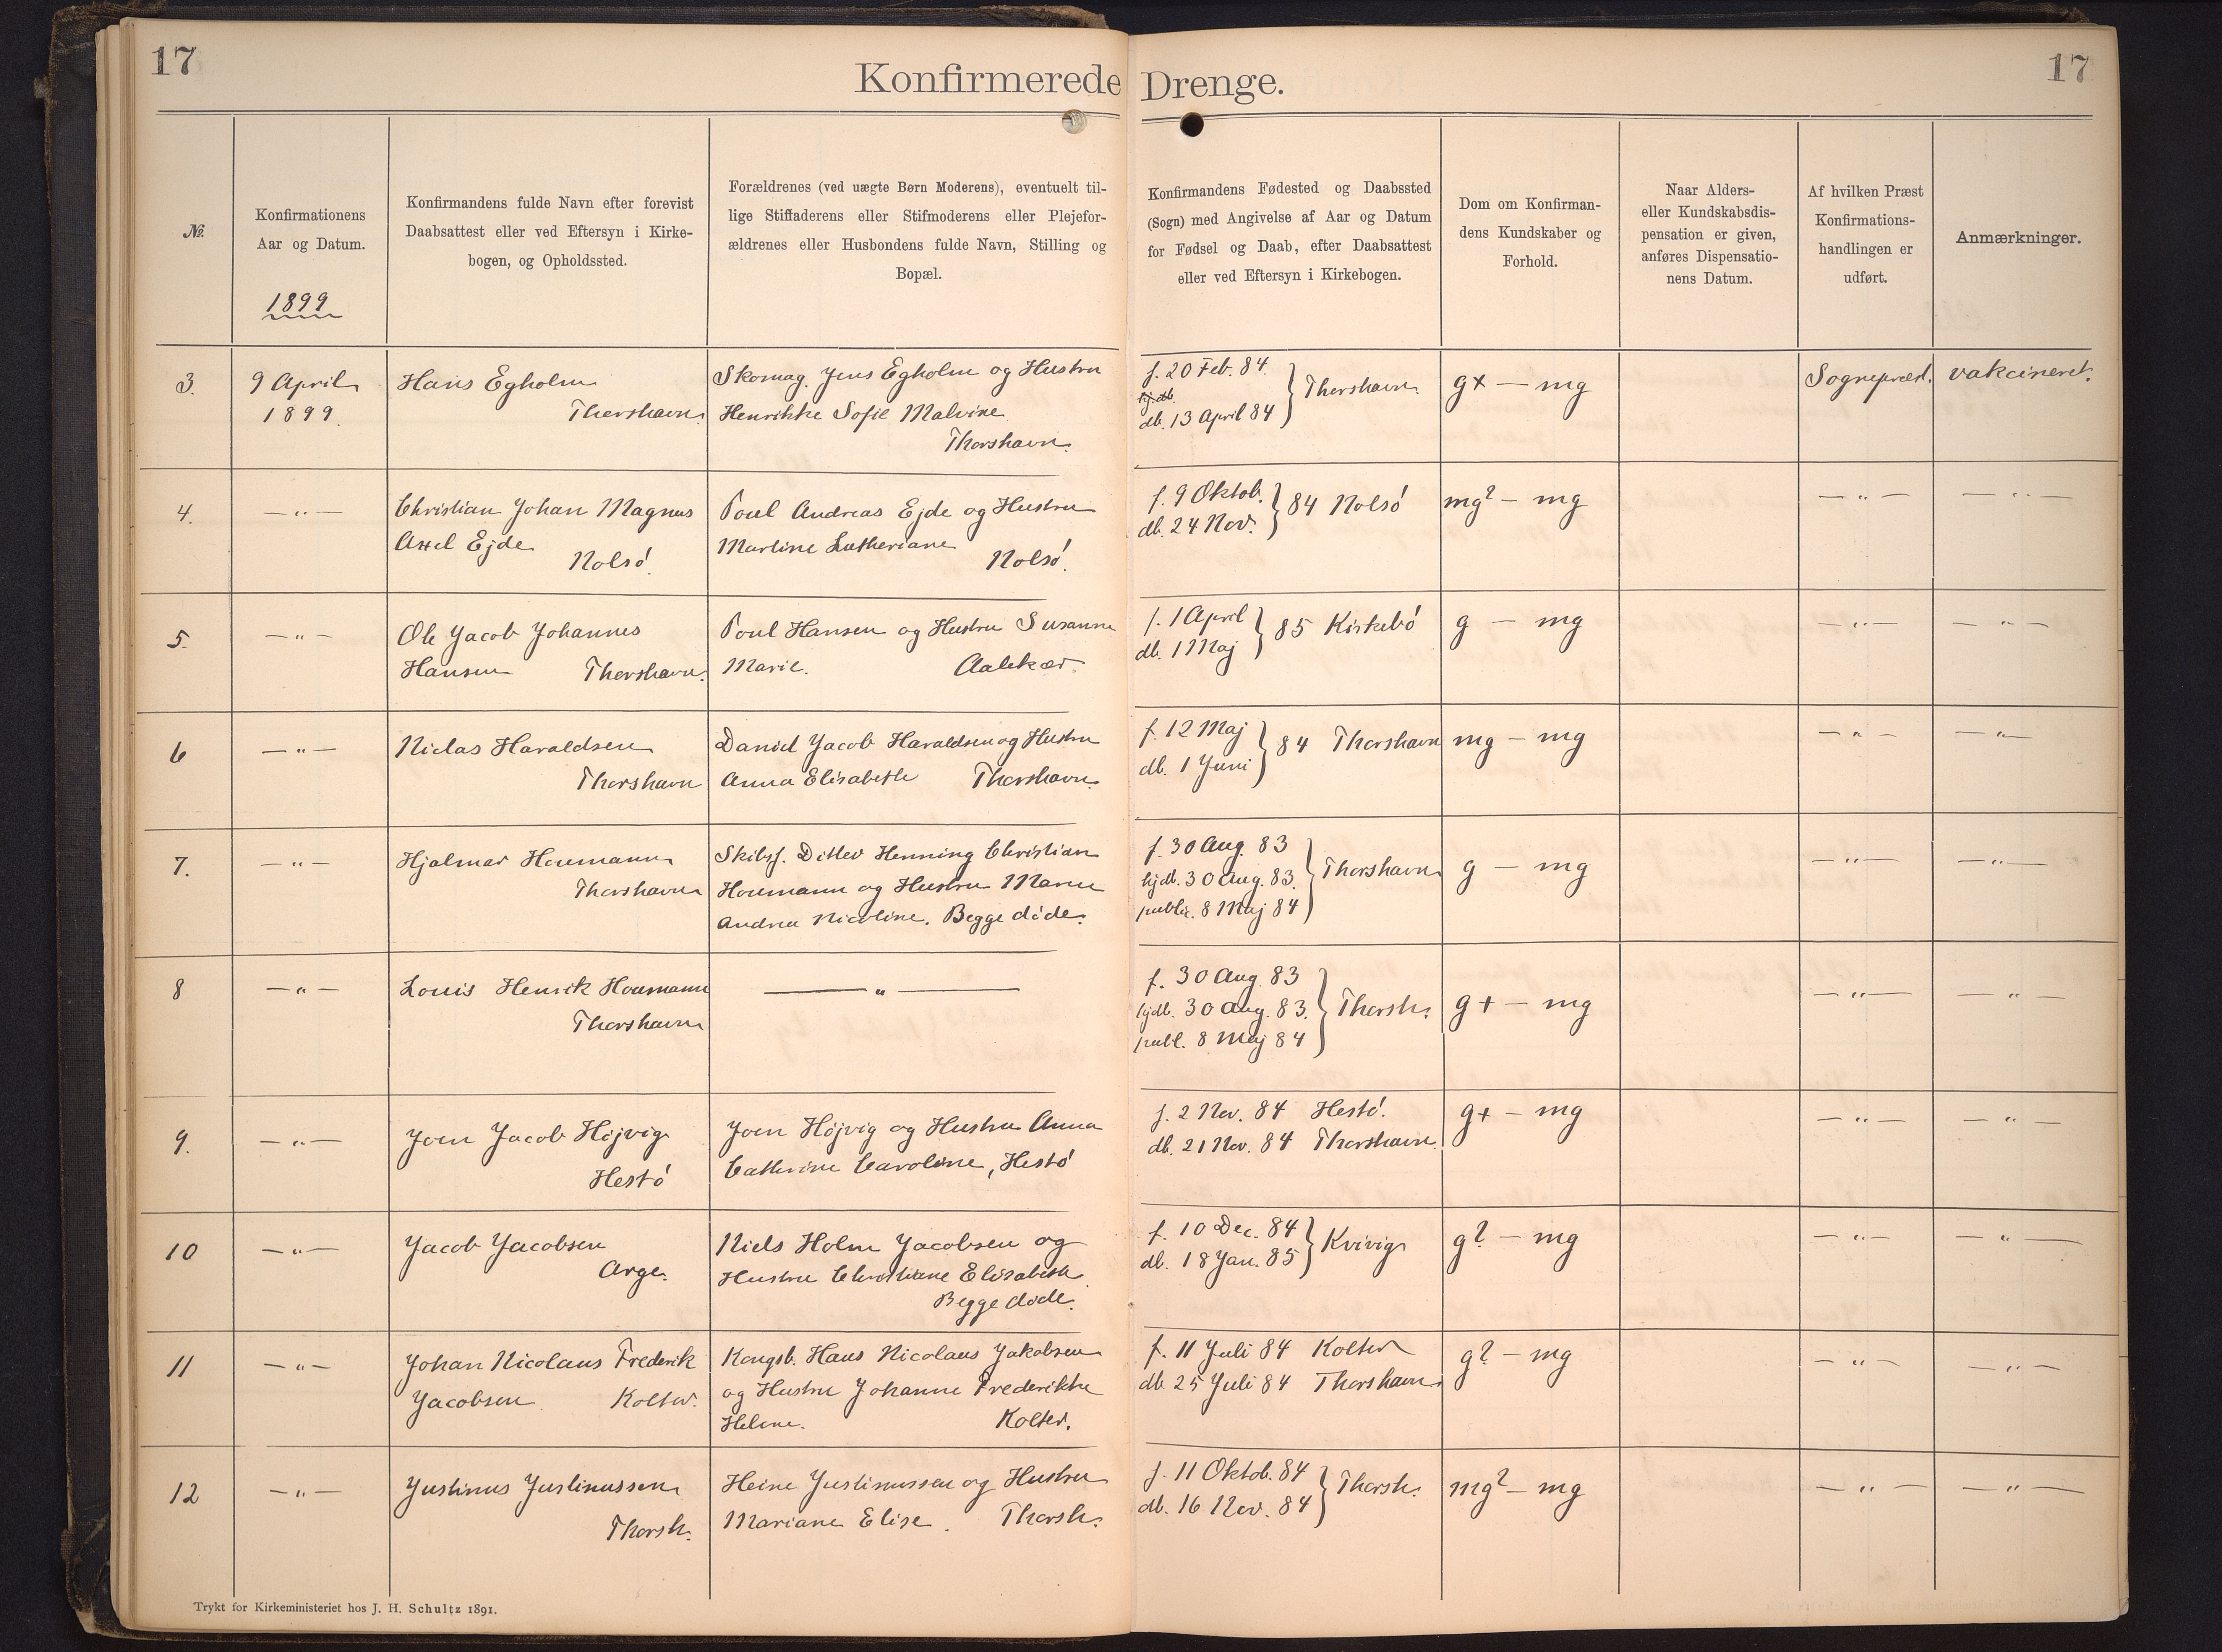 17
Konfirmerede Drenge.
17
№.
Konfirmationens
Aar og Datum.
1899
Konfirmandens fulde Navn efter forevist
Daabsattest eller ved Eftersyn i Kirke-
bogen, og Opholdssted.
Forældrenes (ved uægte Børn Moderens), eventuelt til-
lige Stiffaderens eller Stifmoderens eller Plejefor-
ældrenes eller Husbondens fulde Navn, Stilling og
Bopæl.
Konfirmandens Fødested og Daabssted
(Sogn) med Angivelse af Aar og Datum
for Fødsel og Daab, efter Daabsattest
eller ved Eftersyn i Kirkebogen.
Dom om Konfirman-
dens Kundskaber og
Forhold.
Naar Alders-
eller Kundskabsdis-
pensation er given,
anføres Dispensatio-
nens Datum.
Af hvilken Præst
Konfirmations-
handlingen er
udført.
Anmærkninger.
3.
9 April
1899.
Hans Egholm
Thorshavn.
Skomag. Jens Egholm og Hustru
Henrikke Sofie Malvine
Thorshavn.
f. 20 Feb. 84.
hjdb.
db. 13 April 84
Thorshavn.
g+ — mg
Sognepræst.
vakcineret.
4.
— " —
Christian Johan Magnus
Axel Ejde
Nolsö.
Poul Andreas Ejde og Hustru
Martine Lutheriane
Nolsö.
f. 9 Oktob.
db. 24 Nov.
84 Nolsö
mg? — mg
— " —
— " —
5.
— " —
Ole Jacob Johannes
Hansen Thorshavn.
Poul Hansen og Hustru Susanne
Marie. Aalekær.
f. 1 April
db. 1 Maj
85 Kirkebö
g — mg
— " —
— " —
6
— " —
Niclas Haraldsen
Thorshavn
Daniel Jacob Haraldsen og Hustru
Anna Elisabeth Thorshavn.
f. 12 Maj
db. 1 Juni
84 Thorshavn
mg — mg
— " —
— " —
7.
— " —
Hjalmar Houmann
Thorshavn
Skibsf. Ditlev Henning Christian
Houmann og Hustru Maren
Andrea Nicoline. Begge döde.
f. 30 Aug. 83
hjdb. 30 Aug. 83.
public. 8 Maj 84
Thorshavn
g — mg
— " —
— " —
8
— " —
Louis Henrik Houmann
Thorshavn
— " —
f. 30 Aug. 83
hjdb. 30 Aug. 83.
publ. 8 Maj 84
Thorsh.
g+ — mg
— " —
— " —
9.
— " —
Joen Jacob Höjvig
Hestö
Joen Höjvig og Hustru Anna
Cathrine Caroline, Hestö
f. 2 Nov. 84 Hestö.
db. 21 Nov. 84 Thorshavn.
g+ — mg
— " —
— " —
10
— " —
Jacob Jacobsen
Arge.
Niels Holm Jacobsen og
Hustru Christiane Elisabeth
Begge döde.
f. 10 Dec. 84
db. 18 Jan. 85
Kvivig
g? — mg
— " —
— " —
11
— " —
Johan Nicolaus Frederik
Jacobsen Kolter.
Kongsb. Hans Nicolaus Jakobsen
og Hustru Johanne Frederikke
Helene. Kolter.
f. 11 Juli 84 Kolter
db. 25 Juli 84 Thorshavn.
g? — mg
— " —
— " —
12
— " —
Justinus Justinussen
Thorsh.
Heine Justinussen og Hustru
Mariane Elise. Thorsh.
f. 11 Oktob. 84
db. 16 Nov. 84
Thorsh.
mg? — mg
— " —
— " —
Trykt for Kirkeministeriet hos J. H. Schultz 1891.